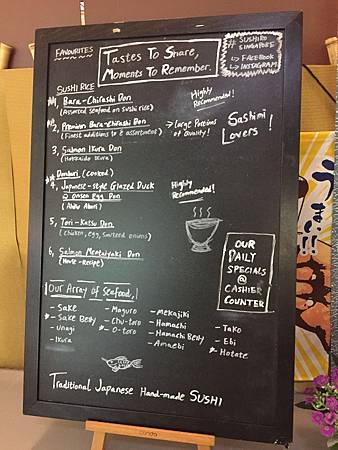 FAVOURITES
TASTES TO SHARE,
MOMENTS TO REMEMBER.
# SUSHIRO
SINGAPORE
↳ FACEBOOK
↳ INSTAGRAM
SUSHI RICE
*1, Bara-Chirashi Don
(Assorted seafood on sushi rice)
Highly
Recommended!
*2, Premium Bara-Chirashi Don
(Finest additions to & assortment)
→ Large Portions
of Quality!
Sashimi
Lovers!
3, Salmon Ikura Don
(Hokkaido Ikura)
Donburi, (cooked)
*4, Japanese-style Glazed Duck
& onsen Egg Don
(Aburi)
Highly
Recommended!
5, Tori-Katsu Don
(Chicken, egg, sautéed onions)
6, Salmon Mentaiyaki Don
(House-Recipe)
OUR
DAILY
SPECIALS
@
CASHIER
COUNTER
Our Array of Seafood,!
- Sake
* Sake Belly
- Unagi
- Ikura
- Maguro
- Chu-toro
* O-toro
- Mekajiki
- Hamachi
- Hamachi Belly
- Amaebi
- Tako
- Ebi
* Hotate
Traditional Japanese Hand-made SUSHI